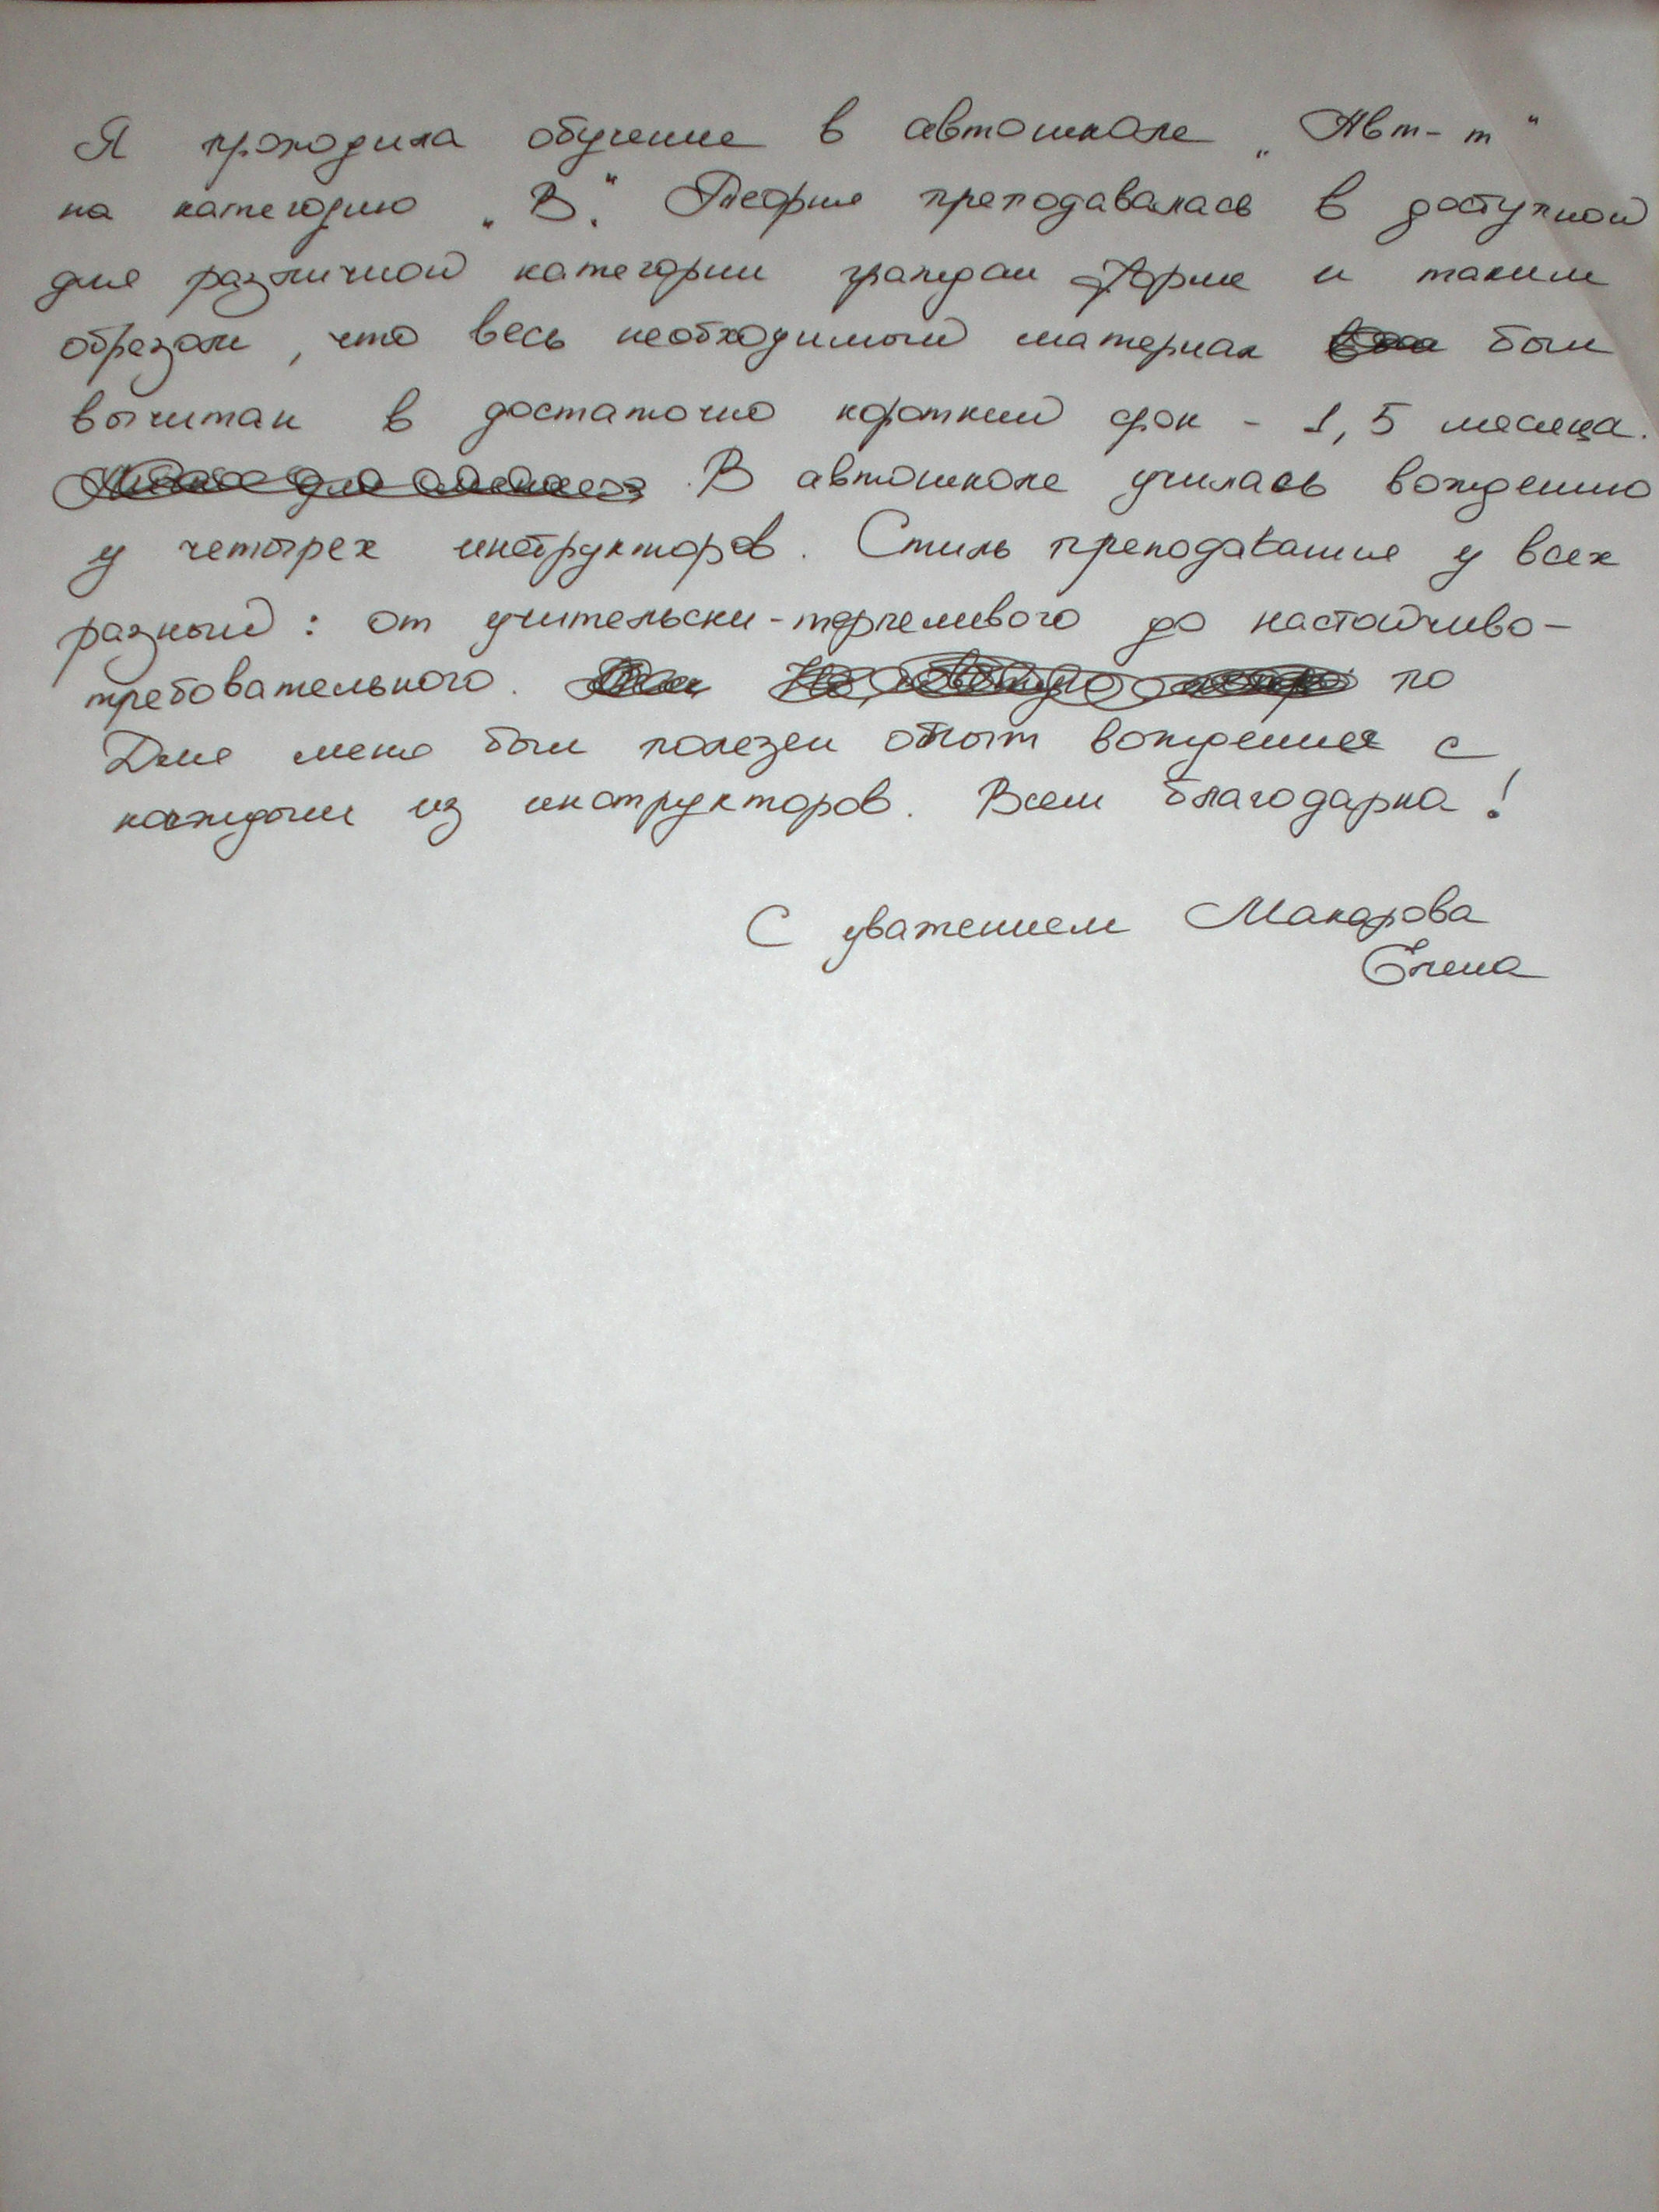 Я проходила обучение в автошколе „Авт-т"
на категорию „В". Теория преподавалась в доступной
для различной категории граждан форме и таким
образом, что весь необходимый материал был
вычитан в достаточно короткий срок - 1,5 месяца.
В автошколе училась вождению
у четырех инструкторов. Стиль преподавания у всех
разный: от учительски-терпеливого до настойчиво-
требовательного. по
Для меня был полезен опыт вождения с
каждым из инструкторов. Всем благодарна!
С уважением Макарова
Елена